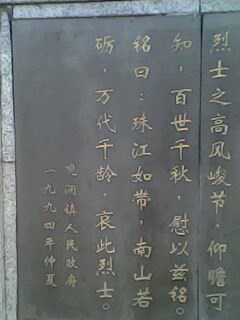 烈士之高风峻节，仰瞻可
知，百世千秋，慰以兹铭。
铭曰：珠江如带，南山若
砺，万代千龄，哀此烈士。
观澜镇人民政府
一九九四年仲夏